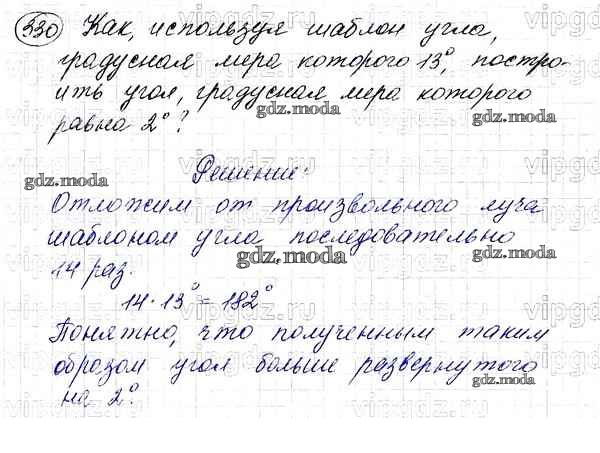 330 Как, используя шаблон угла,
градусная мера которого 13°, постро-
ить угол, градусная мера которого
равна 2°?
gdz.moda
gdz.moda
gdz.moda
Решение:
gdz.moda
Отложим от произвольного луча
шаблоном угла последовательно
gdz.moda
gdz.moda
14 раз.
14·13° = 182°
Понятно, что полученным таким
gdz.moda
образом угол больше развернутого
на 2°.
gdz.moda
vipgdz